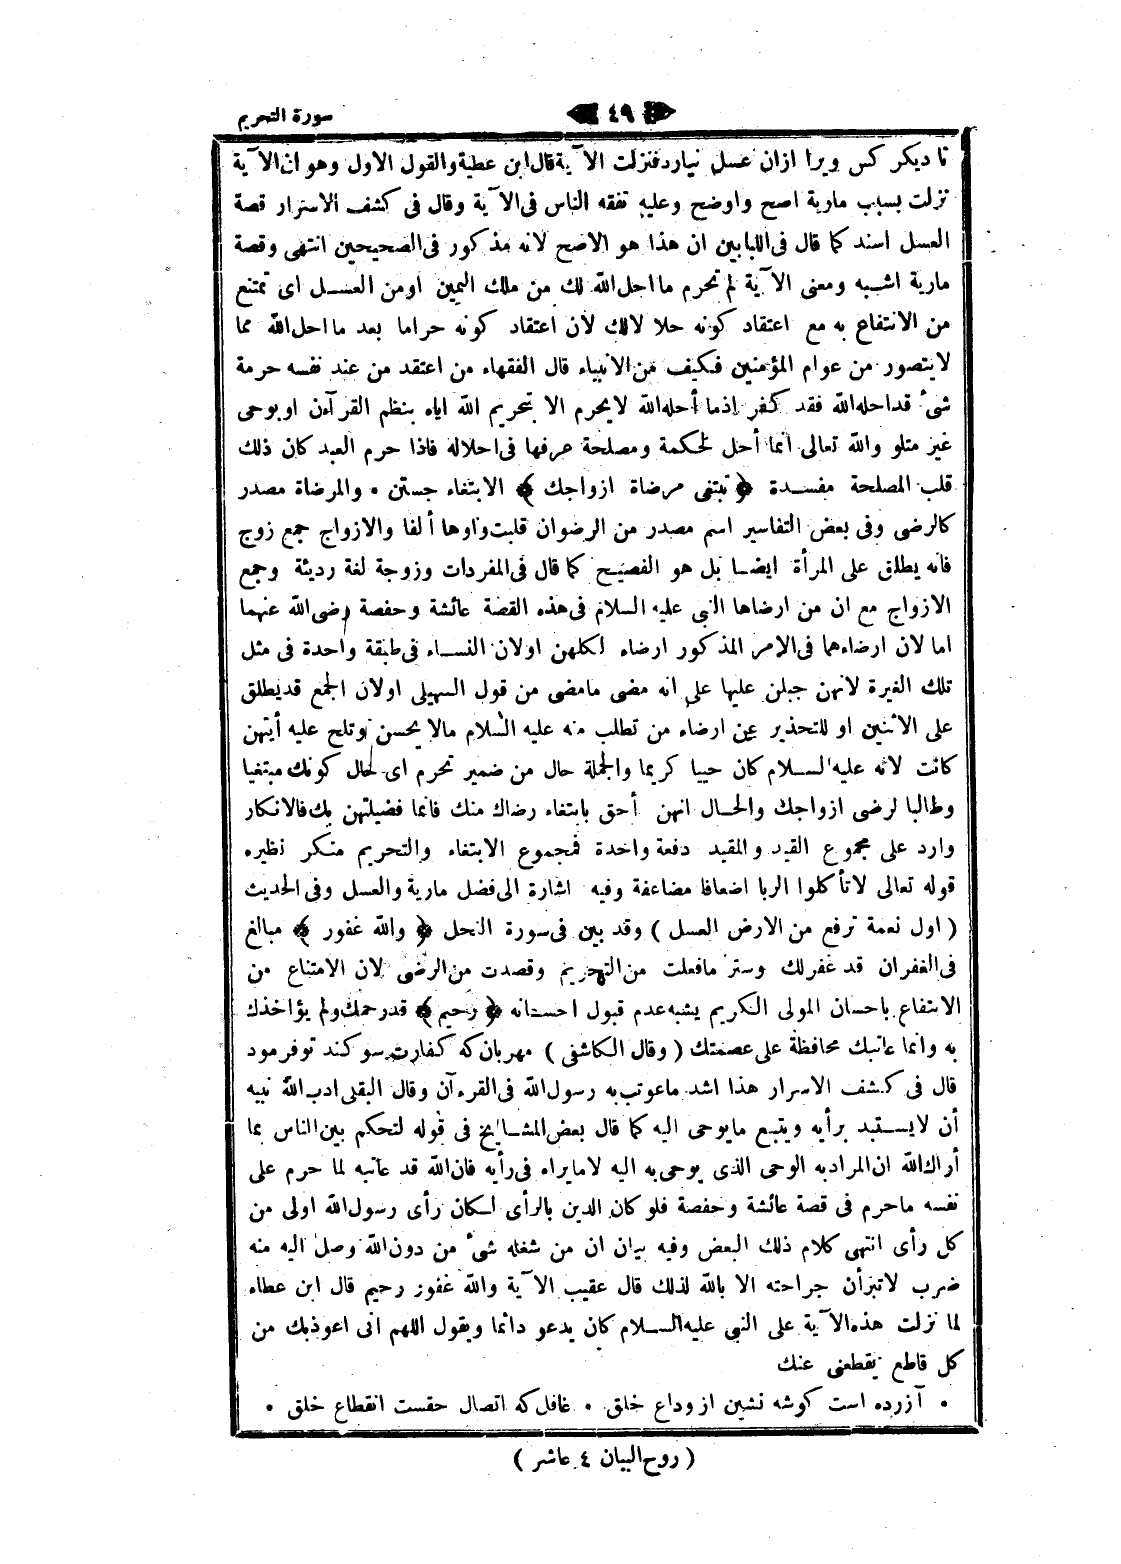 سورة التحريم
٤٩
تا ديكر كس ويرا ازان عسل نيارد فنزلت الآية قال ابن عطية والقول الاول وهو ان الآية
نزلت بسبب مارية اصح واوضح وعليه تفقه الناس فى الآية وقال فى كشف الاسرار قصة
العسل اسند كما قال فى اللبابين ان هذا هو الاصح لانه مذكور فى الصحيحين انتهى وقصة
مارية اشبه ومعنى الآية لم تحرم ما احل الله لك من ملك اليمين اومن العسل اى تمتنع
من الانتفاع به مع اعتقاد كونه حلا لالك لان اعتقاد كونه حراما بعد ما احل الله مما
لايتصور من عوام المؤمنين فكيف من الانبياء قال الفقهاء من اعتقد من عند نفسه حرمة
شئ قد احله الله فقد كفر اذما أحله الله لايحرم الا بتحريم الله اياه بنظم القرآءن اوبوحى
غير متلو والله تعالى انما أحل لحكمة ومصلحة عرفها فى احلاله فاذا حرم العبد كان ذلك
قلب المصلحة مفسدة ﴿ تبتغى مرضاة ازواجك ﴾ الابتغاء جستن • والمرضاة مصدر
كالرضى وفى بعض التفاسير اسم مصدر من الرضوان قلبت واوها ألفا والازواج جمع زوج
فانه يطلق على المرأة ايضا بل هو الفصيح كما قال فى المفردات وزوجة لغة رديئة وجمع
الازواج مع ان من ارضاها النبى عليه السلام فى هذه القصة عائشة وحفصة رضى الله عنهما
اما لان ارضاءهما فى الامر المذكور ارضاء لكلهن اولان النساء فى طبقة واحدة فى مثل
تلك الغيرة لانهن جبلن عليها على انه مضى مامضى من قول السهيلى اولان الجمع قديطلق
على الاثنين او للتحذير عن ارضاء من تطلب منه عليه السلام مالا يحسن وتلح عليه أيتهن
كانت لانه عليه السلام كان حييا كريما والجملة حال من ضمير تحرم اى حال كونك مبتغيا
وطالبا لرضى ازواجك والحال انهن أحق بابتغاء رضاك منك فانما فضيلتهن بك فالانكار
وارد على مجموع القيد والمقيد دفعة واحدة فمجموع الابتغاء والتحريم منكر نظيره
قوله تعالى لاتأكلوا الربا اضعافا مضاعفة وفيه اشارة الى فضل مارية والعسل وفى الحديث
( اول نعمة ترفع من الارض العسل ) وقد بين فى سورة النحل ﴿ والله غفور ﴾ مبالغ
فى الغفران قد غفرلك وستر مافعلت من التحريم وقصدت من الرضى لان الامتناع من
الانتفاع باحسان المولى الكريم يشبه عدم قبول احسانه ﴿ رحيم ﴾ قدرحمك ولم يؤاخذك
به وانما عاتبك محافظة على عصمتك ( وقال الكاشفى ) مهربان كه كفارت سوكند توفرمود
قال فى كشف الاسرار هذا اشد ماعوتب به رسول الله فى القرءآن وقال البقلى ادب الله نبيه
أن لايستبد برأيه ويتبع مايوحى اليه كما قال بعض المشايخ فى قوله لتحكم بين الناس بما
أراك الله ان المرادبه الوحى الذى يوحى به اليه لامايراه فى رأيه فان الله قد عاتبه لما حرم على
نفسه ماحرم فى قصة عائشة وحفصة فلو كان الدين بالرأى لكان رأى رسول الله اولى من
كل رأى انتهى كلام ذلك البعض وفيه بيان ان من شغله شئ من دون الله وصل اليه منه
ضرب لاتبرأن جراحته الا بالله لذلك قال عقيب الآية والله غفور رحيم قال ابن عطاء
لما نزلت هذه الآية على النبى عليه السلام كان يدعو دائما ويقول اللهم انى اعوذبك من
كل قاطع يقطعنى عنك
• آزرده است كوشه نشين از وداع خلق • غافل كه اتصال حقست انقطاع خلق •
( روح البيان ٤ عاشر )